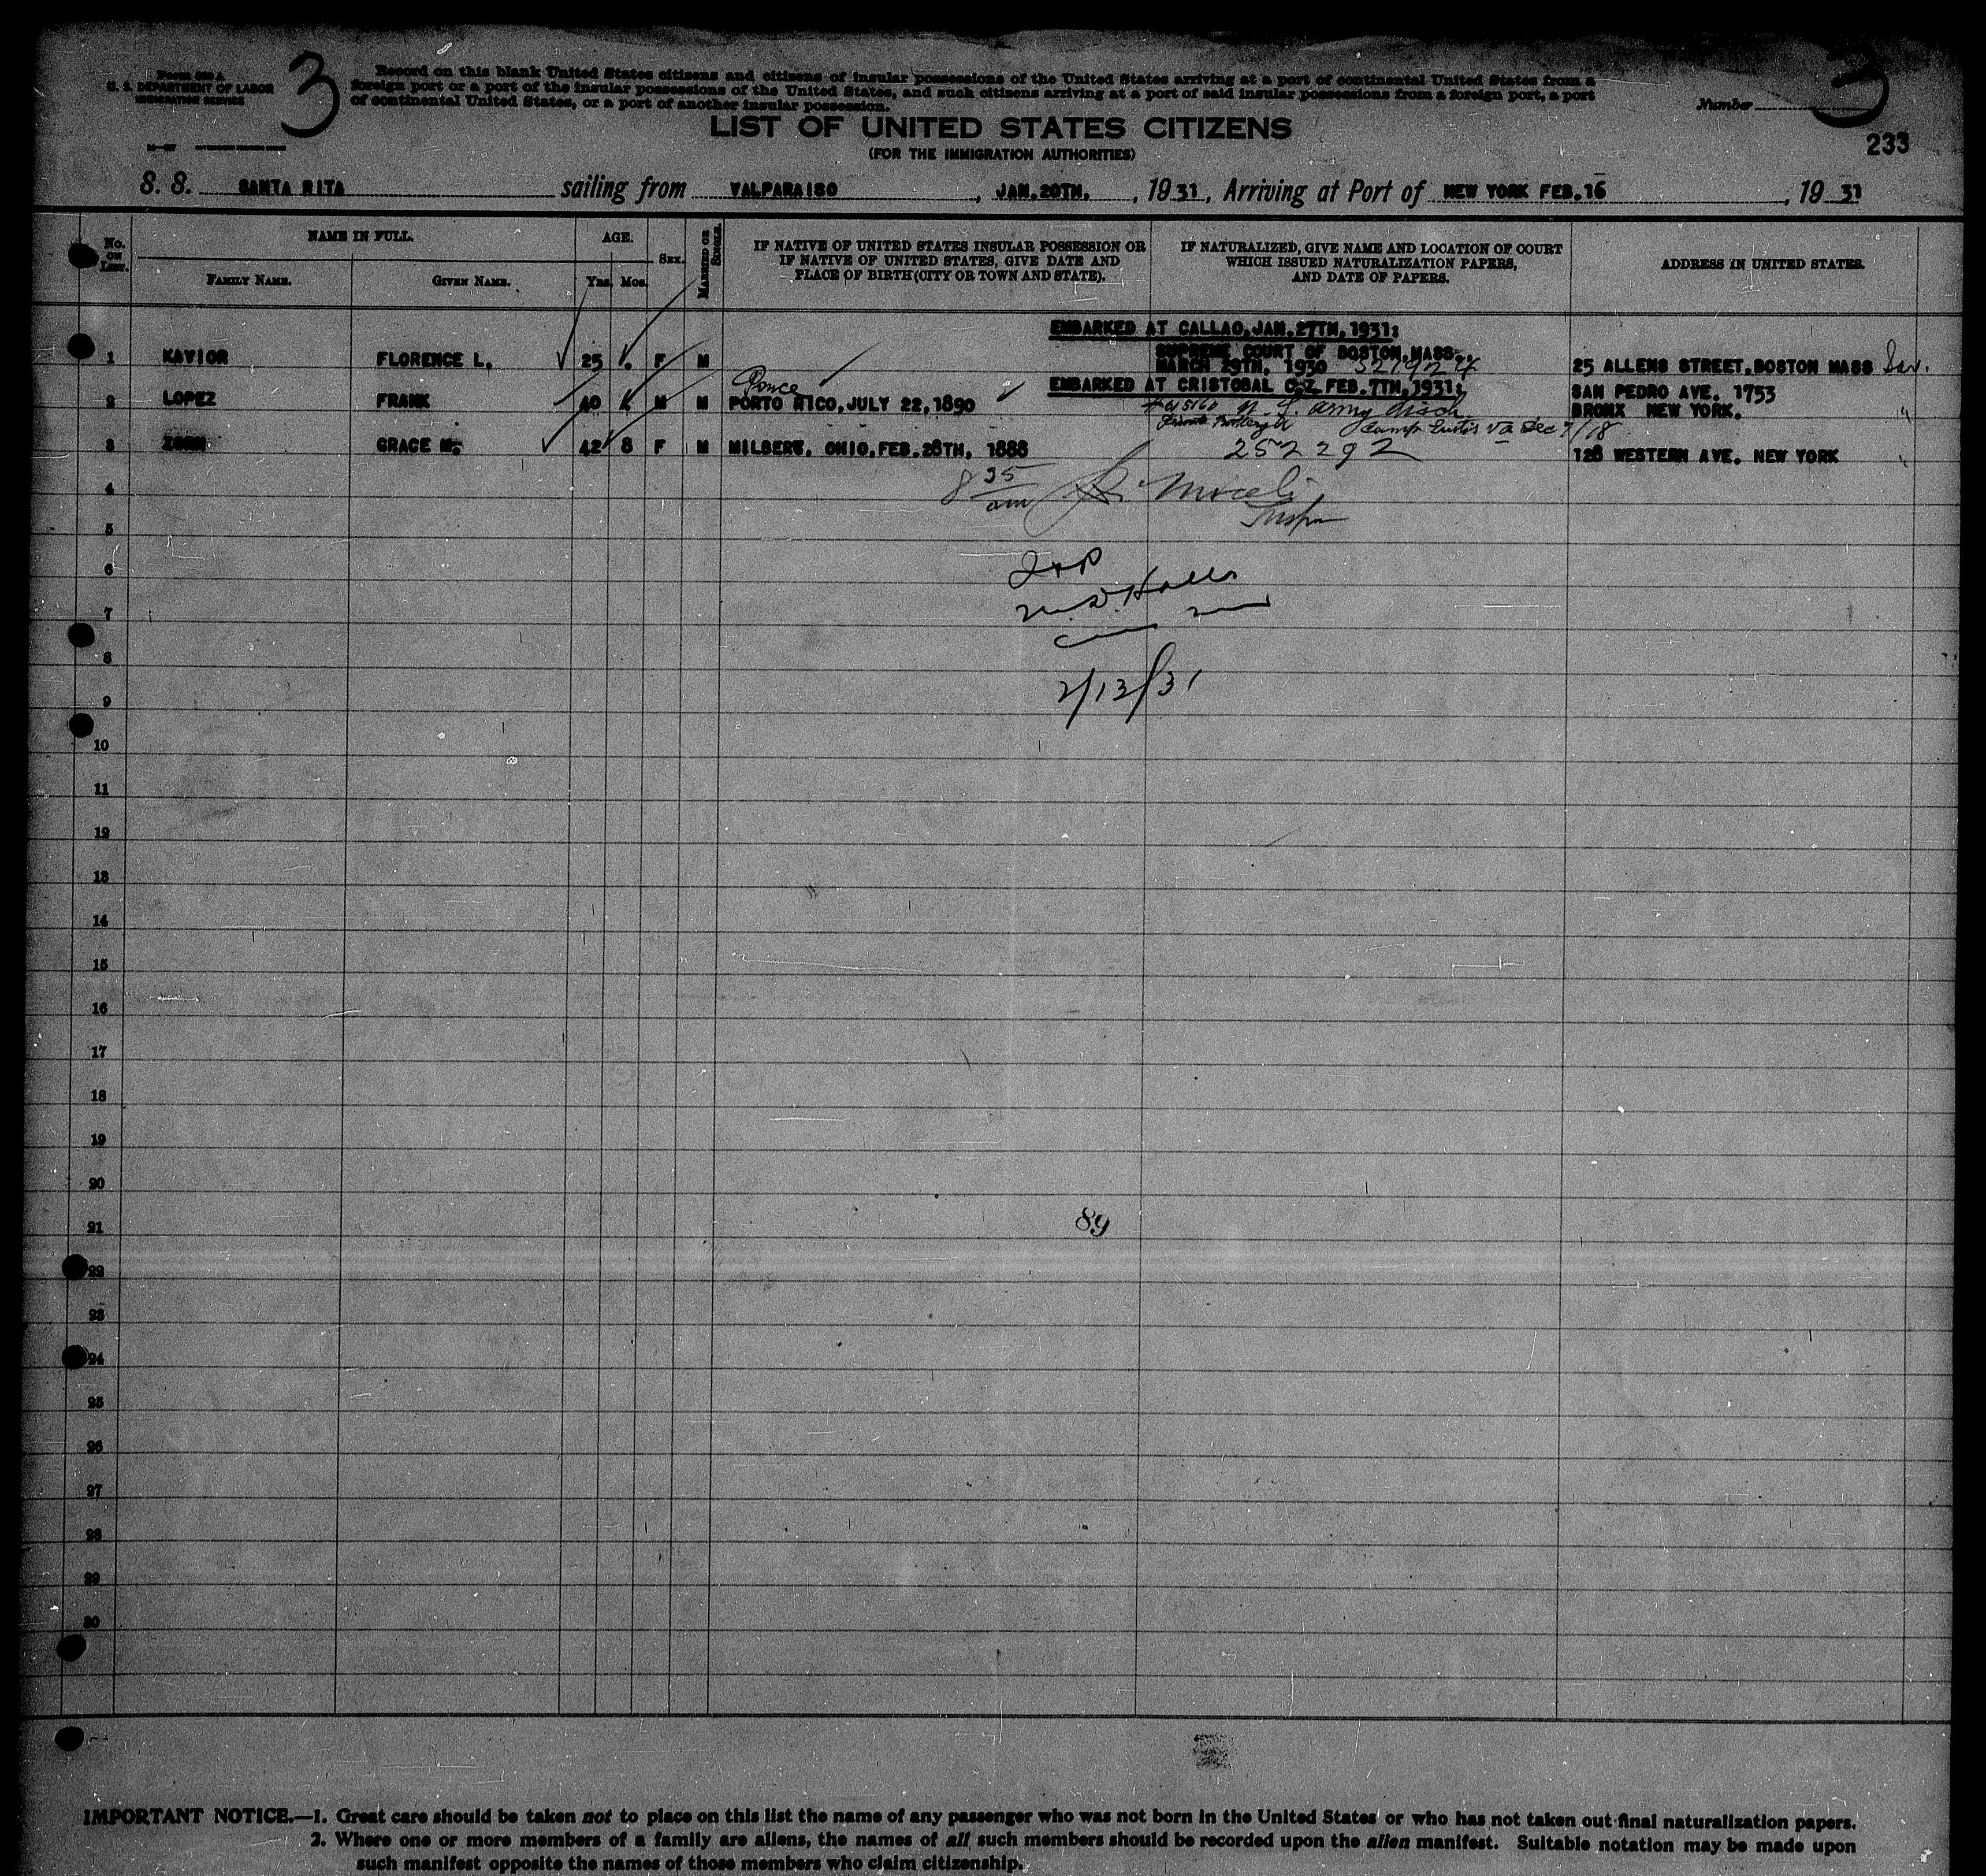 Form 630 A
U. S. DEPARTMENT OF LABOR
IMMIGRATION SERVICE
3
Record on this blank United States citizens and citizens of insular possessions of the United States arriving at a port of continental United States from a
foreign port or a port of the insular possessions of the United States, and such citizens arriving at a port of said insular possessions from a foreign port, a port
of continental United States, or a port of another insular possession.
Number
3
LIST OF UNITED STATES CITIZENS
(FOR THE IMMIGRATION AUTHORITIES)
233
S. S. SANTA RITA sailing from VALPARAISO, JAN.20TH, 1931, Arriving at Port of NEW YORK FEB.16, 1931
No. ON LIST.
NAME IN FULL.
FAMILY NAME.
GIVEN NAME.
AGE.
Yrs. Mos.
SEX.
MARRIED OR SINGLE.
IF NATIVE OF UNITED STATES INSULAR POSSESSION OR
IF NATIVE OF UNITED STATES, GIVE DATE AND
PLACE OF BIRTH (CITY OR TOWN AND STATE).
IF NATURALIZED, GIVE NAME AND LOCATION OF COURT
WHICH ISSUED NATURALIZATION PAPERS,
AND DATE OF PAPERS.
ADDRESS IN UNITED STATES.
EMBARKED AT CALLAO, JAN.27TH, 1931:
SUPREME COURT OF BOSTON, MASS.,
1 KAVIOR FLORENCE L. 25 . F M MARCH 29TH, 1930 321924 25 ALLENS STREET, BOSTON MASS
Ponce
EMBARKED AT CRISTOBAL C.Z. FEB.7TH, 1931:
SAN PEDRO AVE. 1753
2 LOPEZ FRANK 40 M M PORTO RICO, JULY 22, 1890 U.S. Army Disch. BRONX NEW YORK.
Camp Eustis Va Dec 7/18
3 ZORN GRACE M. 42 8 F M MILBERT, OHIO, FEB. 28TH, 1888 252292 128 WESTERN AVE. NEW YORK
4 8 35 am Miceli
Inspr
5
6
7
8
2/13/31
9
10
11
12
13
14
15
16
17
18
19
20
89
21
22
23
24
25
26
27
28
29
30
IMPORTANT NOTICE.—1. Great care should be taken not to place on this list the name of any passenger who was not born in the United States or who has not taken out final naturalization papers.
2. Where one or more members of a family are aliens, the names of all such members should be recorded upon the alien manifest. Suitable notation may be made upon
such manifest opposite the names of those members who claim citizenship.